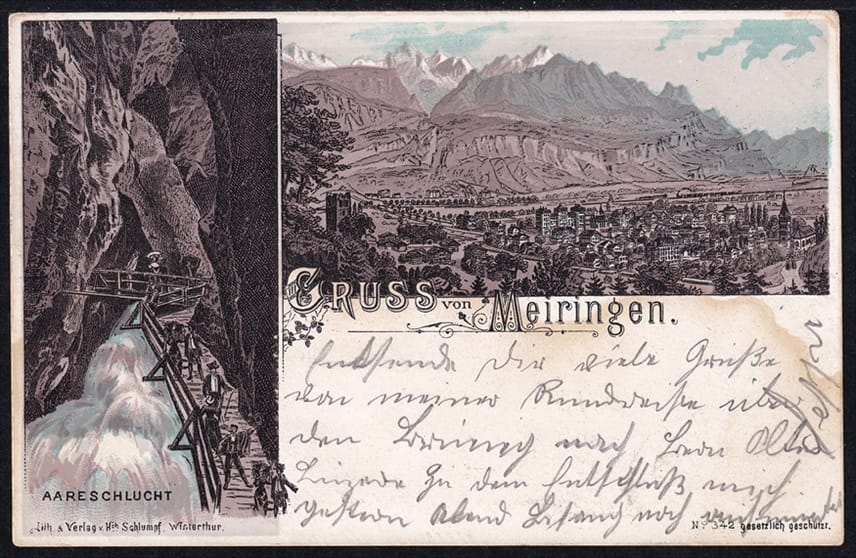 GRUSS von Meiringen.
Entsende Dir viele Grüße
von meiner Rundreise über
den Brünig nach
zu dem Entschluß mich
gestern Abend noch
AARESCHLUCHT
Lith. & Verlag v. Hch. Schlumpf, Winterthur.
No. 342 gesetzlich geschützt.